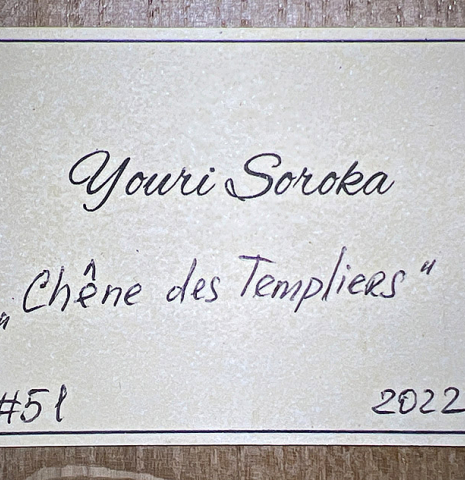 Youri Soroka
„Chêne des Templiers"
#51 2022